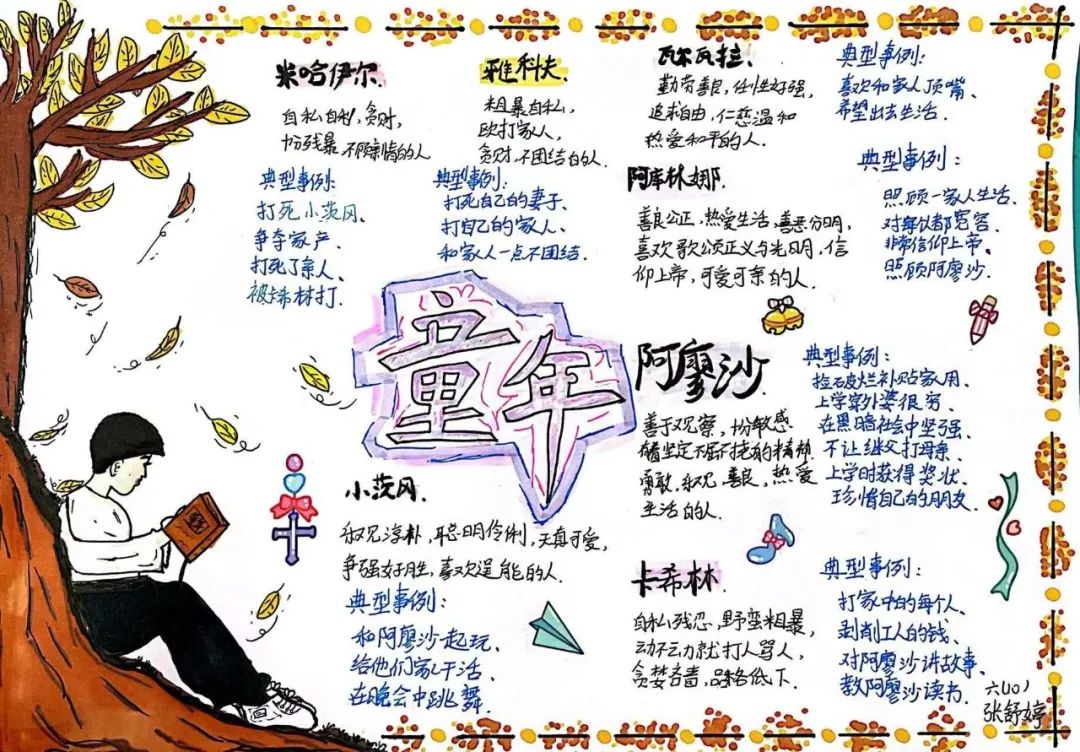 米哈伊尔.
自私自利,贪财,
十分残暴,不顾亲情的人
典型事例:
打死小茨冈、
争夺家产、
打死了亲人、
被卡希林打.
雅科夫.
粗暴自私,
殴打家人,
贪财,不团结的人.
典型事例:
打死自己的妻子、
打自己的家人、
和家人一点不团结.
瓦尔瓦拉.
勤劳善良,任性好强,
追求自由,仁慈温和
热爱和平的人.
典型事例:
喜欢和家人顶嘴、
希望出去生活.
阿库林娜.
善良公正,热爱生活,善恶分明,
喜欢歌颂正义与光明,信
仰上帝,可爱可亲的人.
典型事例:
照顾一家人生活、
对每次都宽容、
非常信仰上帝、
照顾阿廖沙.
童年
阿廖沙.
善于观察,十分敏感
有着坚定不屈不挠的精神,
勇敢、淳、善良,热爱
生活的人.
典型事例:
捡破烂补贴家用、
上学穿外婆很穷、
在黑暗社会中坚强、
不让继父打母亲、
上学时获得奖状、
珍惜自己的朋友.
小茨冈.
淳朴,聪明伶俐,天真可爱,
争强好胜,喜欢逞能的人.
典型事例:
和阿廖沙起玩、
给他们家人干活、
在晚会中跳舞.
卡希林.
自私残忍,野蛮粗暴,
动不动就打人骂人,
贪婪吝啬,品格低下.
典型事例:
打家中的每个人、
剥削工人的钱、
对阿廖沙讲故事、
教阿廖沙读书.
六(10)
张舒婷